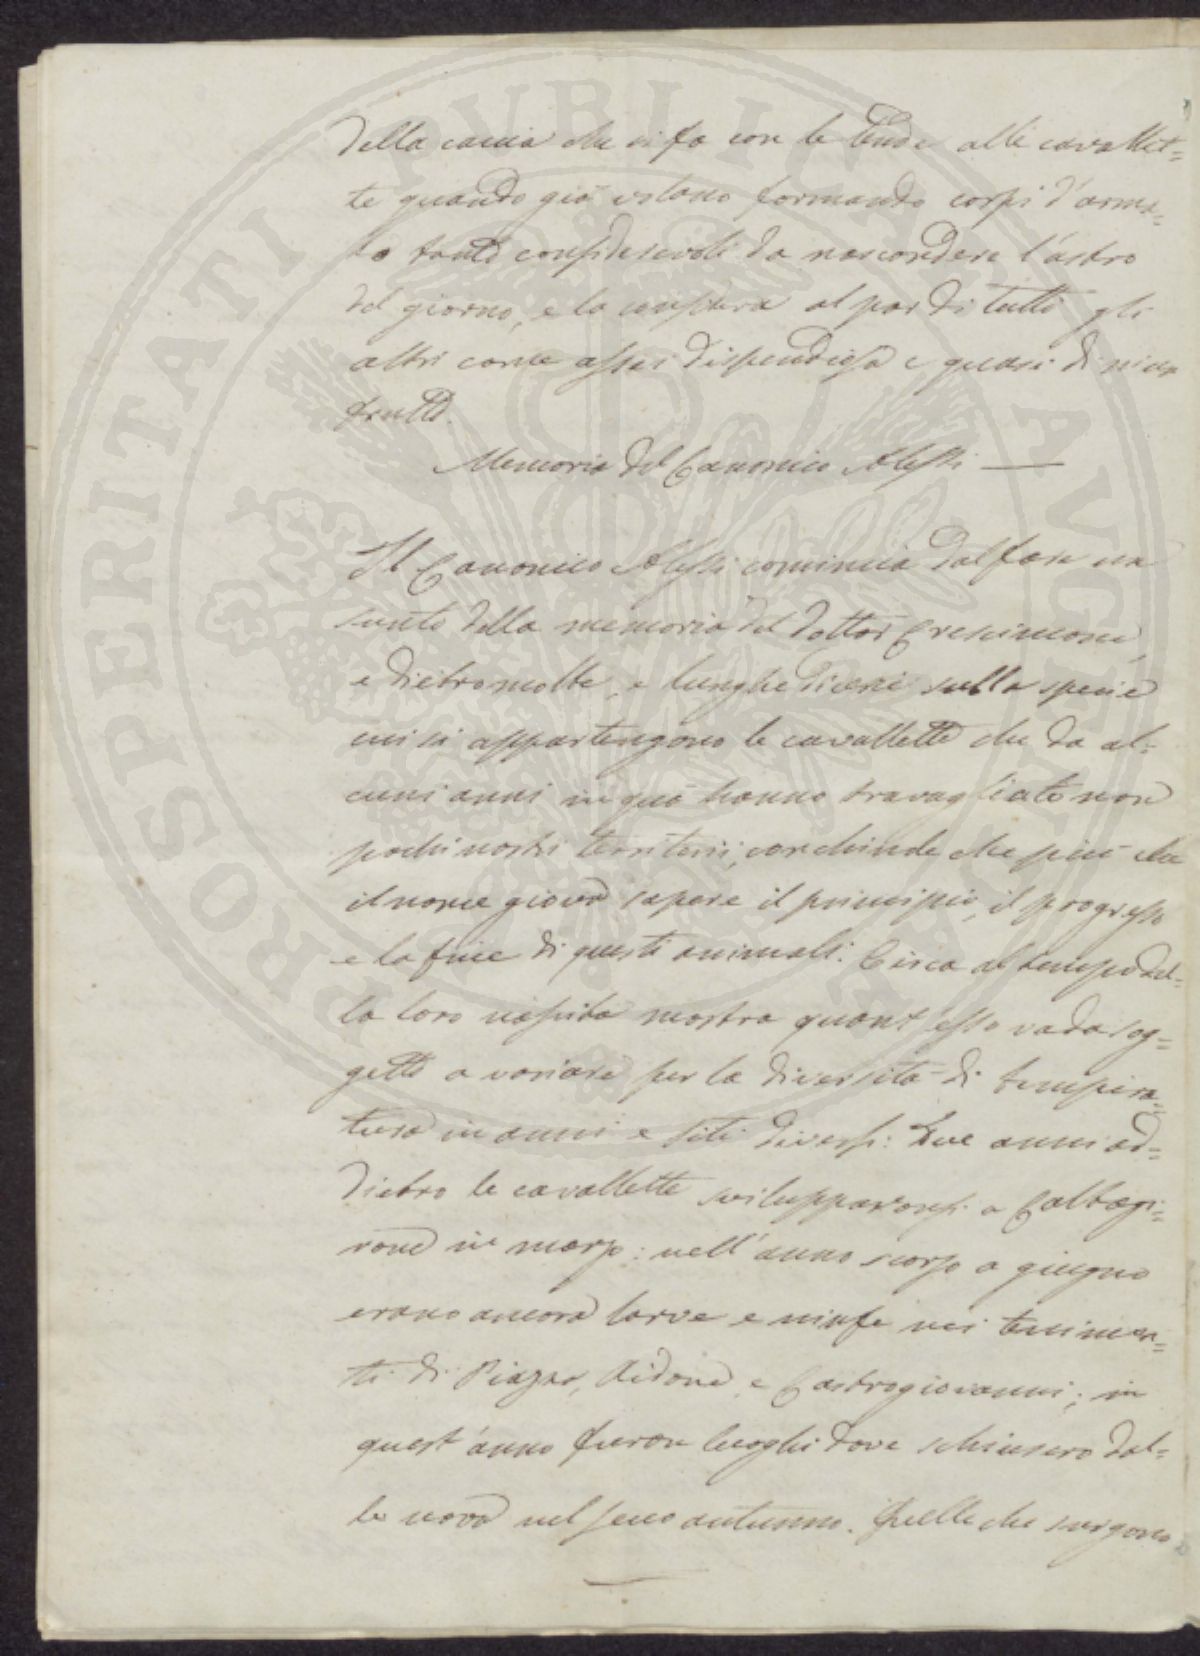 della caccia che si fa con le tende alle cavallet=
te quando già volano formando corpi d'arma=
ta tanto considerevoli da nascondere l'astro
del giorno, e la considera al par di tutti gli
altri come assai dispendiosa e quasi di niun
frutto.
Memoria del Canonico Alessi —
Il Canonico Alessi comincia dal fare un
sunto della memoria del dottor Crescimone,
e dietro molte, e lunghe dicerie sulla specie
cui si appartengono le cavallette che da al=
cuni anni in quà hanno travagliato non
pochi nostri territorii, conchiude che più che
il nome giova sapere il principio, il progresso
e la fine di questi animali. Circa al tempo del=
la loro nascita mostra quant'esso vada sog=
getto a variare per la diversità di tempera=
tura in anni e siti diversi: due anni ad=
dietro le cavallette svilupparonsi a Caltagi=
rone in marzo: nell'anno scorso a giugno
erano ancora larve e ninfe nei tenimen=
ti di Piazza, Aidone, e Castrogiovanni; in
quest'anno furon luoghi dove schiusero dal=
le uova nel seno autunno. Quelle che surgono
PROSPERITATI PUBLICAE AUGENDAE